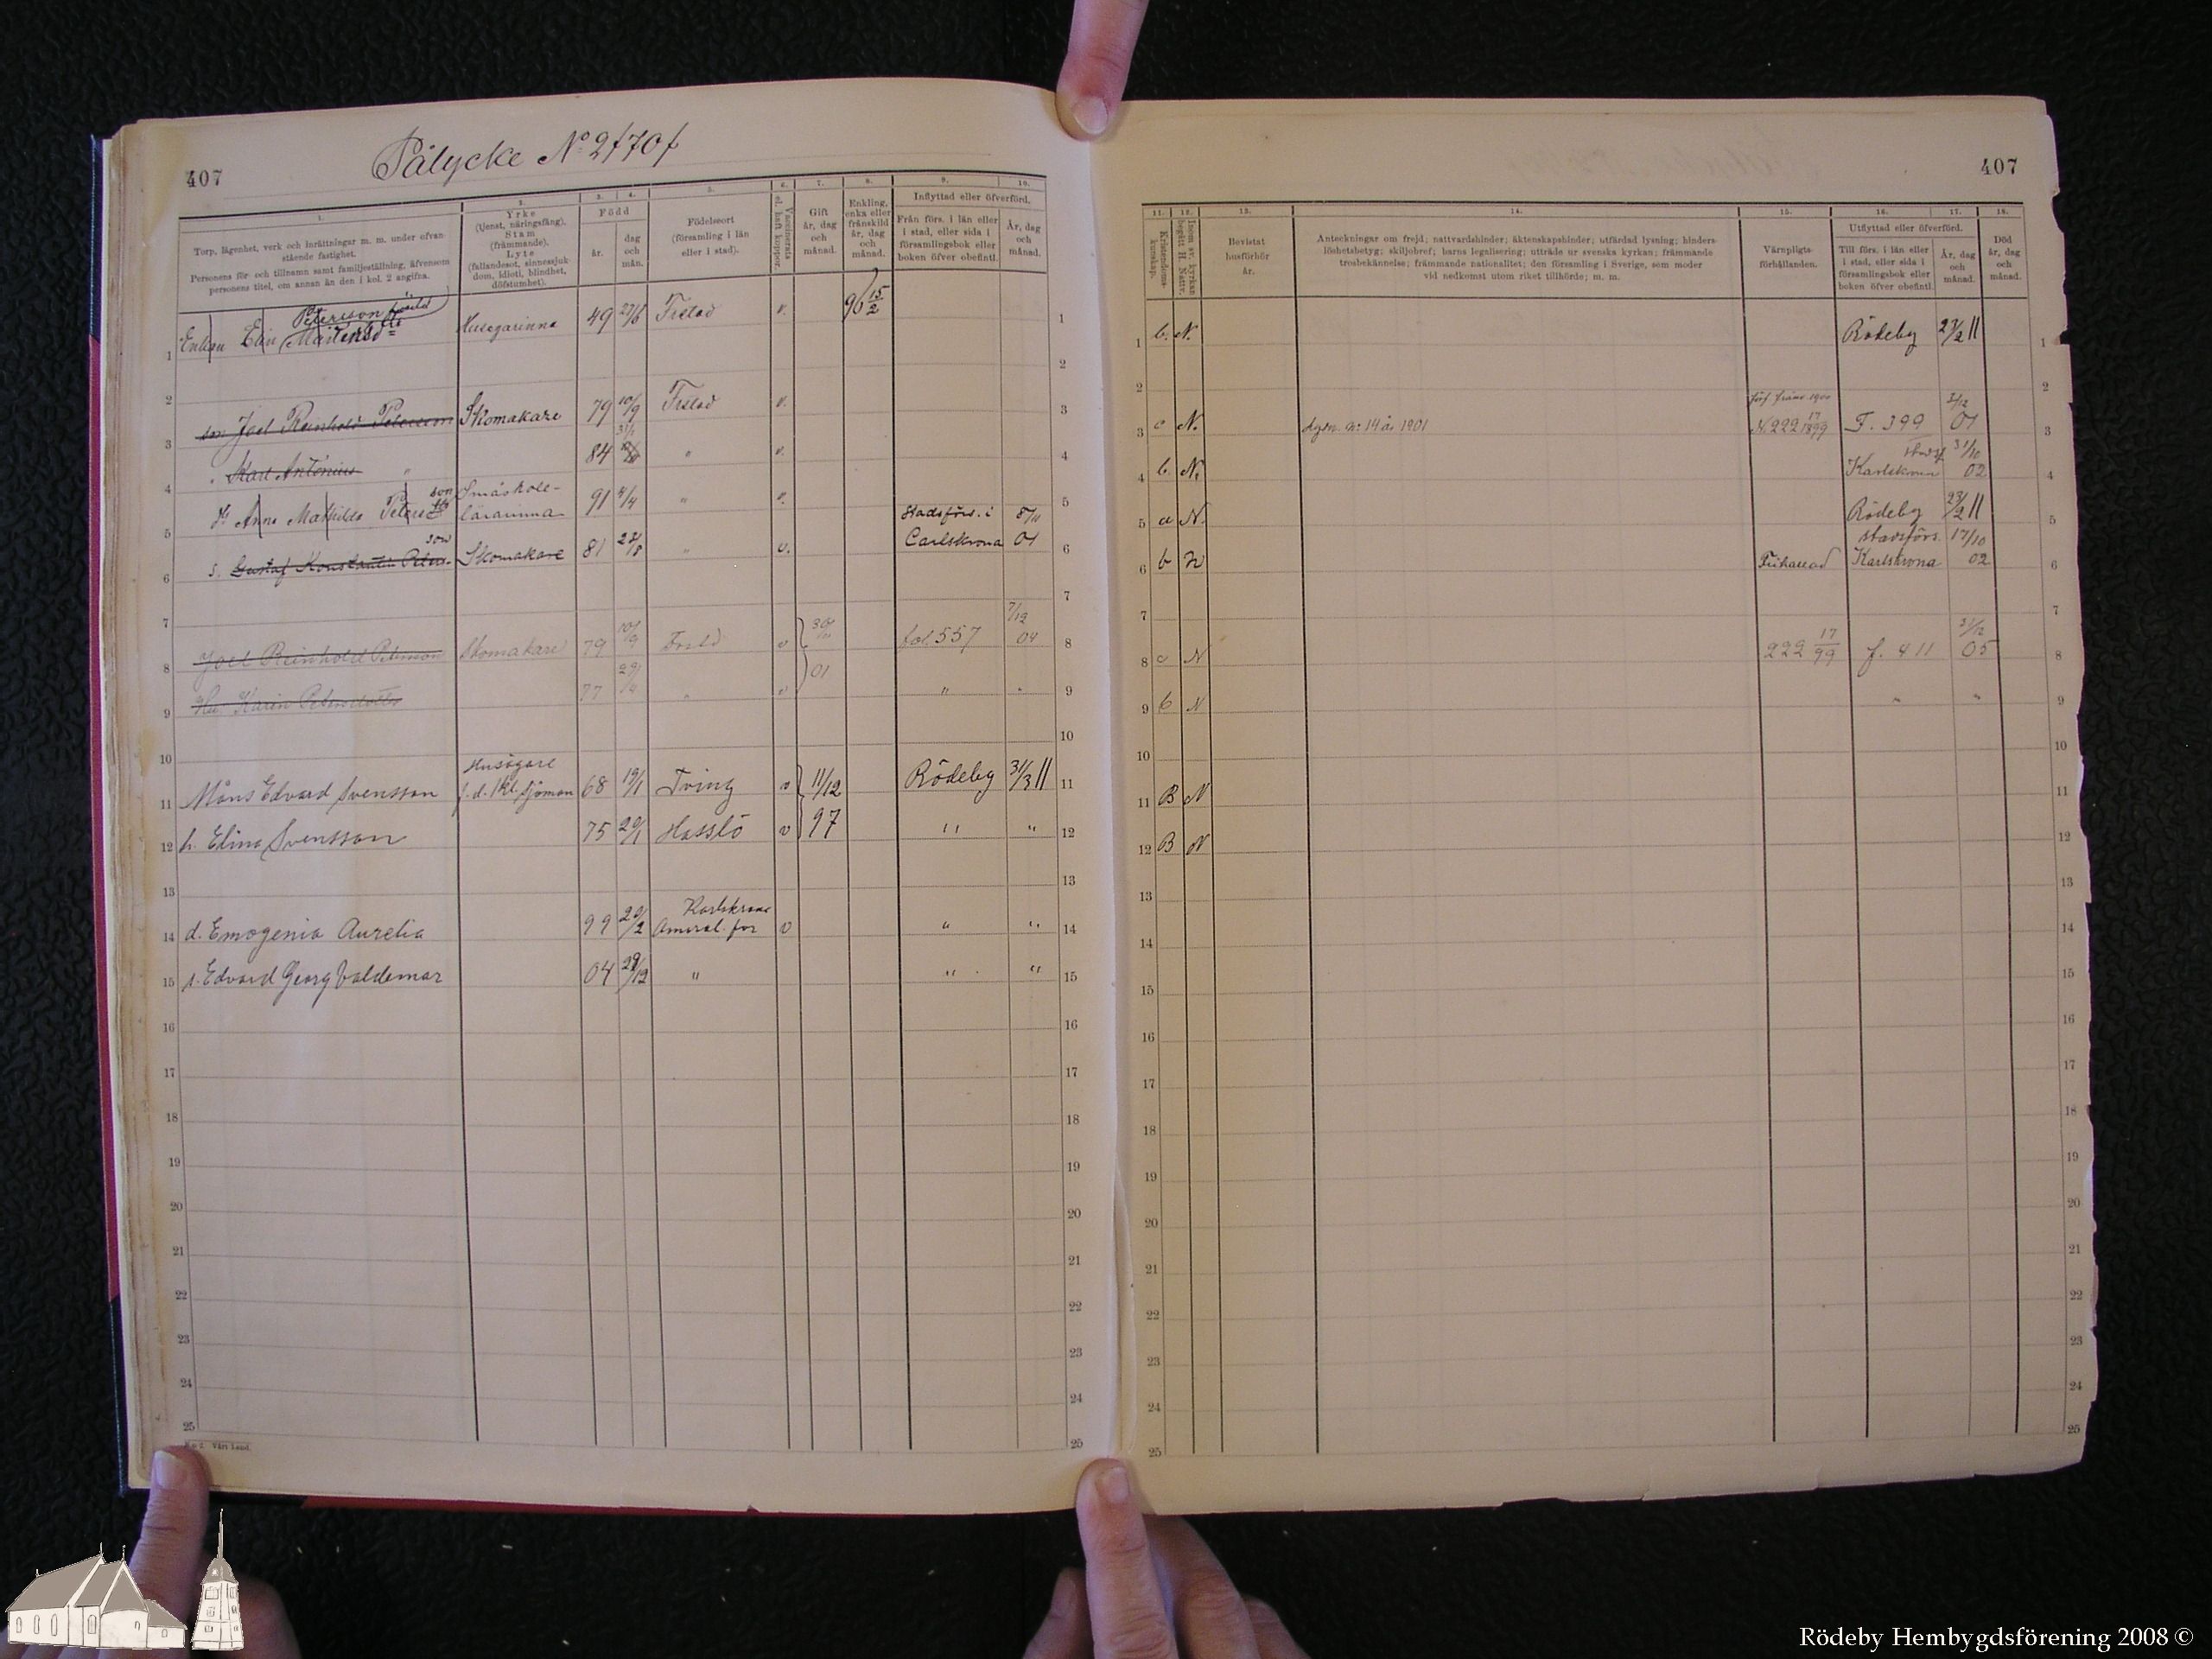 407
Pålycke No 2/70f
1. 2. 3. 4. 5. 6. 7. 8. 9. 10.
Torp, lägenhet, verk och inrättningar m. m. under ofvanstående fastighet.
Personens för- och tillnamn samt familjeställning, äfvensom personens titel, om annan än den i kol. 2 angifna.
Yrke
(tjenst, näringsfång).
Stam
(främmande).
Lyte
(fallandesot, sinnessjukdom, idioti, blindhet, döfstumhet).
Född
år.
dag och mån.
Födelseort
(församling i län eller i stad).
Vaccinerats el. haft koppor.
Gift
år, dag och månad.
Enkling, enka eller frånskild år, dag och månad.
Inflyttad eller öfverförd.
Från förs. i län eller i stad, eller sida i församlingsbok eller boken öfver obefintl.
År, dag och månad.
1 Enkan Elin Petersson Mårtensd Husegarinna 49 27/6 Frstad v. 96 15/2 1
2 2
3 son Joel Reinhold Petersson Skomakare 79 10/9 Frstad v. 3
4 " Karl Antonius " 84 31/1 " v. 4
5 dr Anna Mathilda Peterson Småskolelärarinna 91 4/4 " v. 5
6 s. Gustaf Konstantin Peterson Skomakare 81 22/8 " v. Stadsförs. i Carlskrona 8/11 01 6
7 7
8 Joel Reinhold Peterson Skomakare 79 10/9 Frstd v 30/11 01 fol. 557 7/12 04 8
9 Hu. Karin Petersdotter 77 " v " " 9
10 10
11 Måns Edvard Svensson Husägare f. d. 1 kl. sjöman 68 19/1 Tving v 11/12 97 Rödeby 31/3 11 11
12 h. Elina Svensson 75 29/1 Hasslö v " " 12
13 13
14 d. Emogenia Aurelia 99 29/2 Karlskrona Amiral. för v " " 14
15 s. Edvard Georg Valdemar 04 29/12 " " " 15
16 16
17 17
18 18
19 19
20 20
21 21
22 22
23 23
24 24
25 25
N:o 2. Vårt Land.
407
11. 12. 13. 14. 15. 16. 17. 18.
Kristendomskunskap.
Inom sv. kyrkan begått H. Nattv.
Bevistat husförhör år.
Anteckningar om frejd; nattvardshinder; äktenskapshinder; utfärdad lysning; hinderslöshetsbetyg; skiljobref; barns legalisering; utträde ur svenska kyrkan; främmande trosbekännelse; främmande nationalitet; den församling i Sverige, som moder vid nedkomst utom riket tillhörde; m. m.
Värnpligtsförhållanden.
Utflyttad eller öfverförd.
Till förs. i län eller i stad, eller sida i församlingsbok eller boken öfver obefintl.
År, dag och månad.
Död år, dag och månad.
1 b. N. Rödeby 23/2 11 1
2 2
3 c N. lysn. N:o 14 år 1901 N. 222 17/1899 F. 399 3/12 01 3
4 b. N. stadsf. Karlskrona 31/10 02 4
5 a N. Rödeby 23/2 11 5
6 b N Frikallad stadsförs. Karlskrona 17/10 02 6
7 7
8 c N 222 17/99 f. 411 31/12 05 8
9 b N " " 9
10 10
11 B N 11
12 B N 12
13 13
14 14
15 15
16 16
17 17
18 18
19 19
20 20
21 21
22 22
23 23
24 24
25 25
Rödeby Hembygdsförening 2008 ©